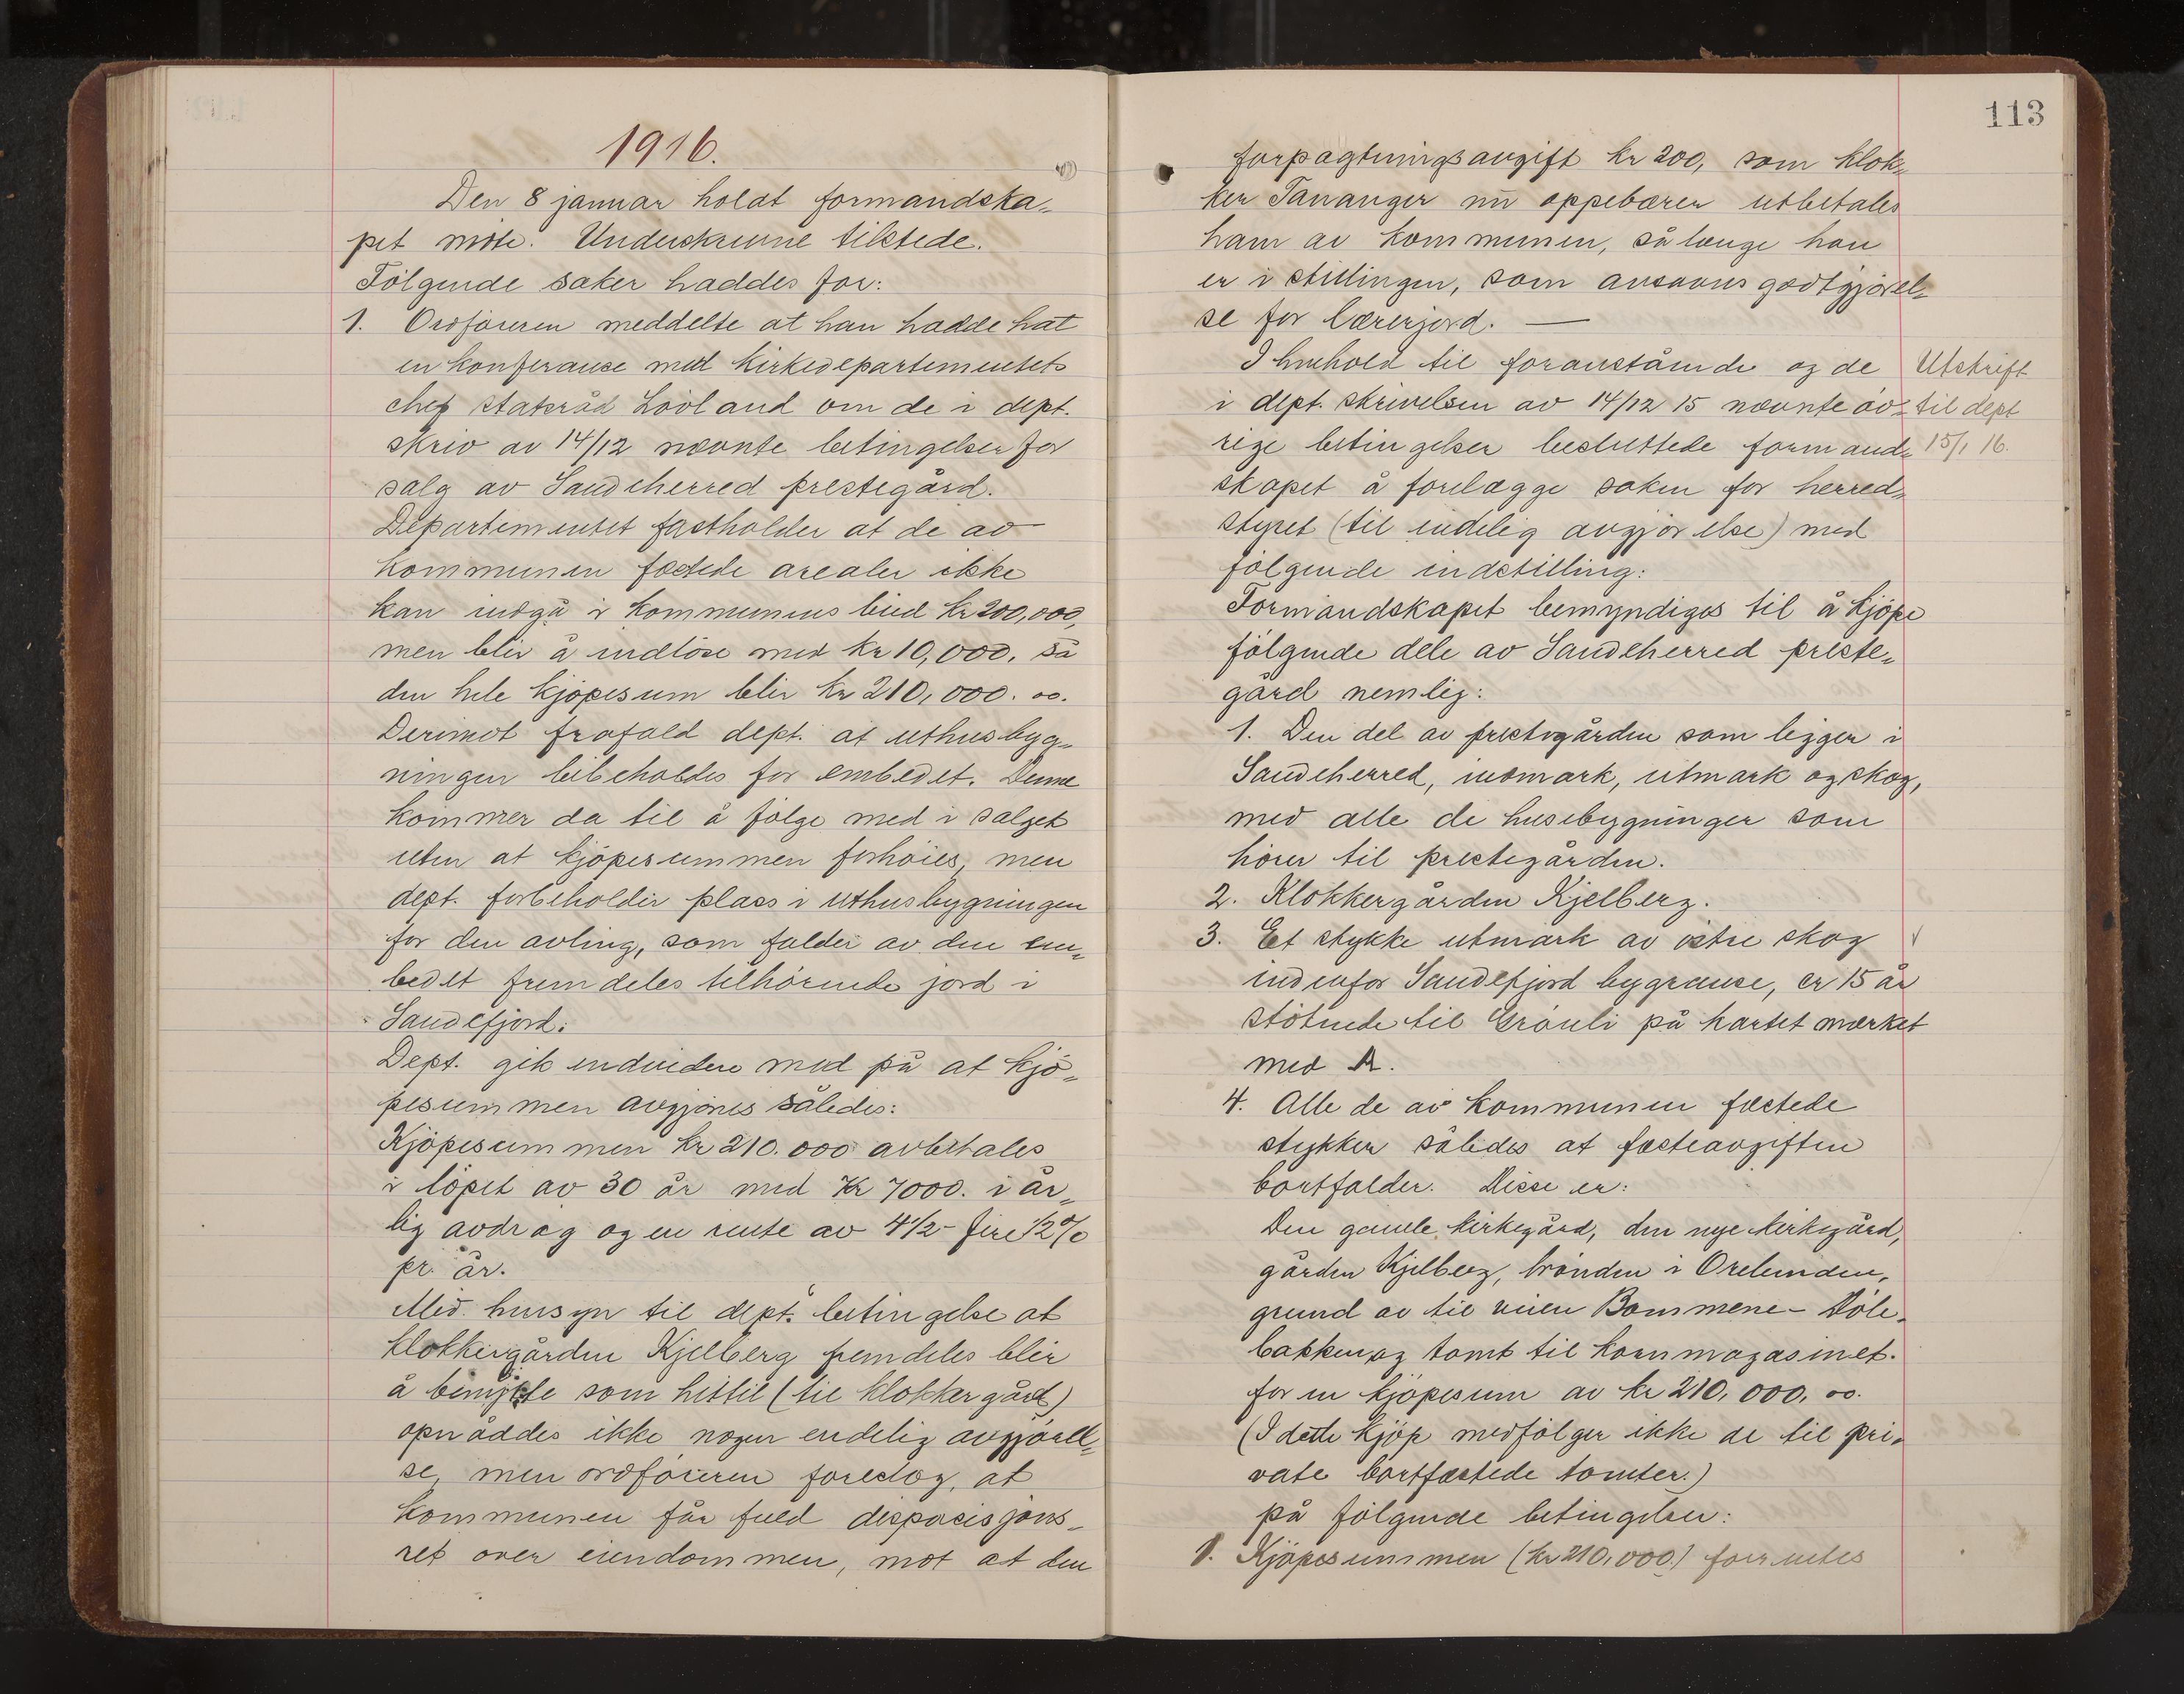 1916.
Den 8 januar holdt formandska-
pet möte. Underskrevne tilstede.
Følgende saker haddes for:
1. Ordföreren meddelte at han hadde hat
en konferanse med Kirkedepartementets
chef statsråd Lövland om de i dept.
skriv av 14/12 nævnte betingelser for
salg av Sandeherred prestegård.
Departementet fastholder at de av
Kommunen fæstede arealer ikke
kan indgå i kommunens bud kr 200,000,
men blir å indlöse med kr 10,000. så
den hele kjöpesum blir kr 210,000.00.
Derimot frafald dept. at uthusbyg-
ningen bibeholdes for embedet. Denne
kommer da til å fölge med i salget
uten at kjöpesummen forhöies, men
dept. forbeholder plass i uthusbygningen
for den avling, som falder av den em-
bedet fremdeles tilhörende jord i
Sandefjord.
Dept. gik endvidere med på at kjö-
pesummen avgjöres således:
Kjöpesummen kr 210.000 avbetales
i löpet av 30 år med Kr 7000. i år-
lig avdrag og en rente av 4 1/2 - fire 1/2 %
pr. år.
Med hensyn til dept. betingelse at
klokkergården Kjelberg fremdeles blir
å benytte som hittil (til klokkergård)
opnåddes ikke nogen endelig avgjörel-
se, men ordföreren foreslog, at
Kommunen får fuld disposisjons-
ret over eiendommen, mot at den
113
forpagtningsavgift kr 200, som klok-
ker Tananger nu oppebærer utbetales
ham av kommunen, så længe han
er i stillingen, som ansvens godtgjörel-
se for lærerjord. —
I henhold til foranstående og de
i dept. skrivelsen av 14/12 15 nævnte öv-
rige betingelser besluttede formand-
skapet å forelægge saken for herred-
styret (til endelig avgjörelse) med
fölgende indstilling:
Utskrift
til dept
15/1 16.
Formandskapet bemyndiges til å kjöpe
fölgende dele av Sandeherred preste-
gård nemlig:
1. Den del av prestegården som ligger i
Sandeherred, indmark, utmark og skog,
med alle de husebygninger som
hörer til prestegården.
2. Klokkergården Kjelberg.
3. Et stykke utmark av östre skog
indenfor Sandefjord bygrænse, ca 15 ar
stötende til Grönli på kartet mærket
med A.
4. Alle de av kommunen fæstede
stykker således at fæsteavgiften
bortfalder. Disse er:
Den gamle kirkegård, den nye kirkegård,
gården Kjelberg, brönden i Orelunden,
grund av til veien Bommene - Döle-
bakken, og tomt til kornmagasinet.
for en kjöpesum av kr 210,000,00.
(I dette kjöp medfölger ikke de til pri-
vate bortfæstede tomter.)
på fölgende betingelser:
1. Kjöpesummen (kr 210,000.) forrentes